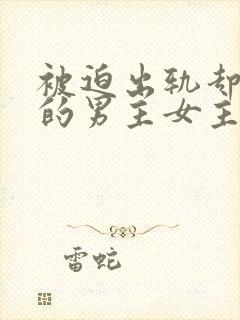 被迫出轨却
的男主女主
雷蛇